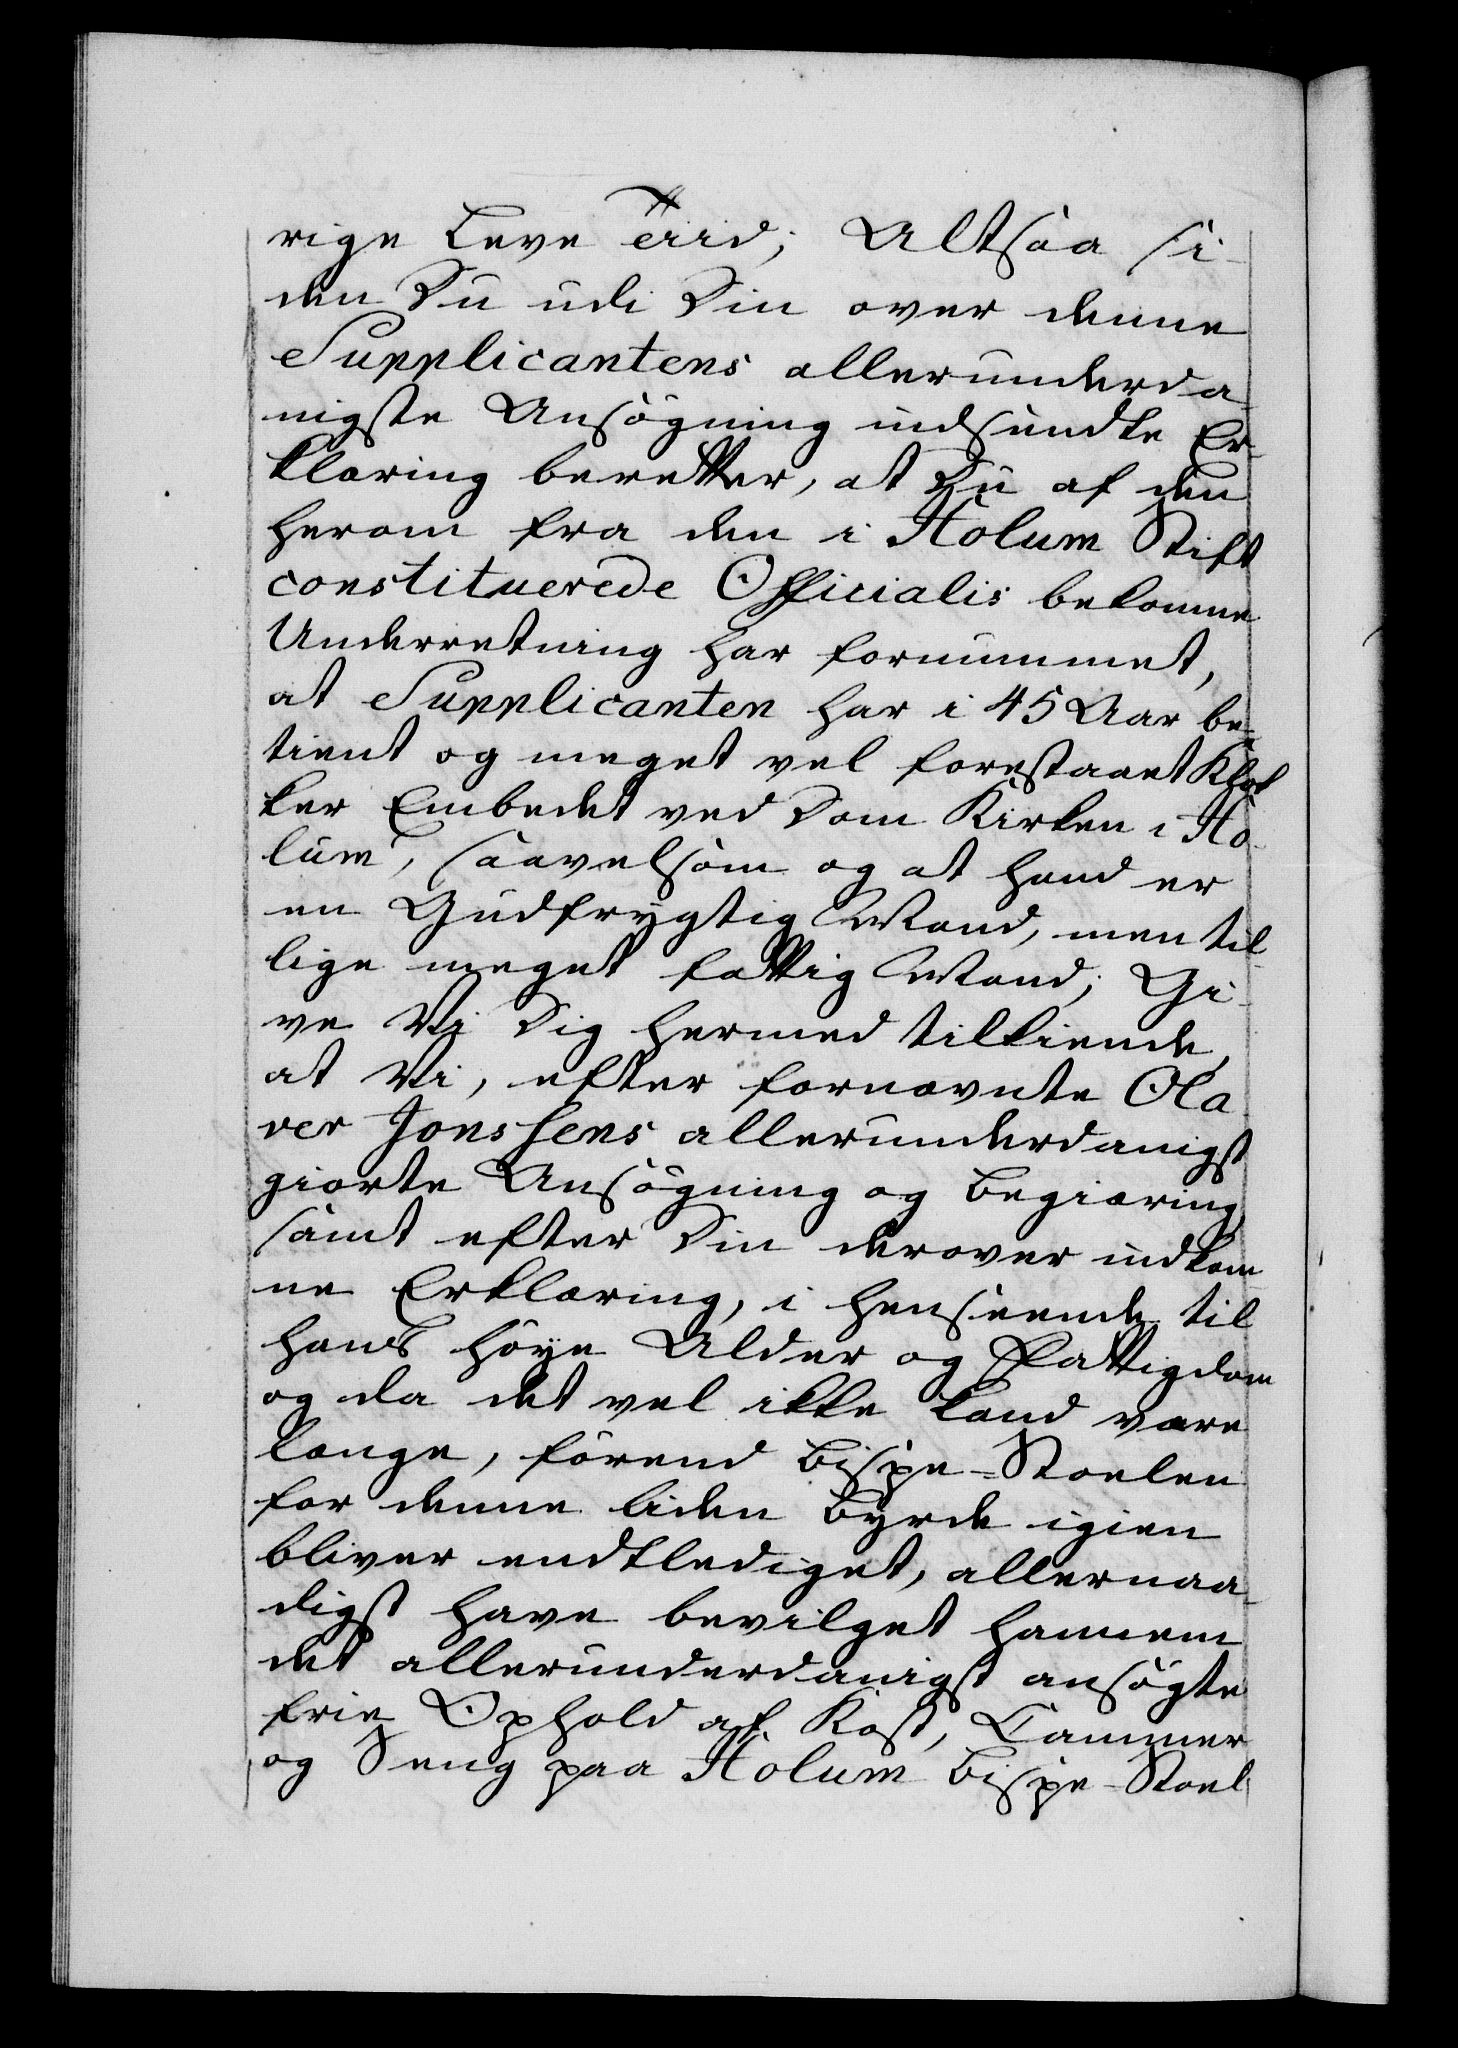 rige Leve Tiid; Altsaa si-
den Du udi Din over denne
Supplicantens allerunderda-
nigste Ansøgning indsendte Er-
klæring beretter, at Du af den
herom fra den i Holum Stift
constituerede Officialis bekomne
Underretning har fornummet,
at Supplicanten har i 45 Aar be-
tient og meget vel forestaaet Klok
ker Embedet ved Dom Kirken i Ho-
lum, saavelsom og at hand er
en Gudfrygtig Mand, men til-
lige meget fattig Mand; Gi-
ve Vi Dig hermed tilkiende,
at Vi, efter fornævnte Ola
ver Jonssens allerunderdanigst
giorte Ansøgning og Begiæring,
samt efter Din derover indkom-
ne Erklæring, i henseende til
hans høye Alder og Fattigdom
og da det vel ikke kand være
længe, førend Bispe-Stoelen
for denne liden Byrde igien
bliver endtlediget, allernaa-
digst have bevilget hannem
det allerunderdanigst ansøgte
frie Ophold af Kost, Cammer
og Seng paa Holum Bispe-Stoel